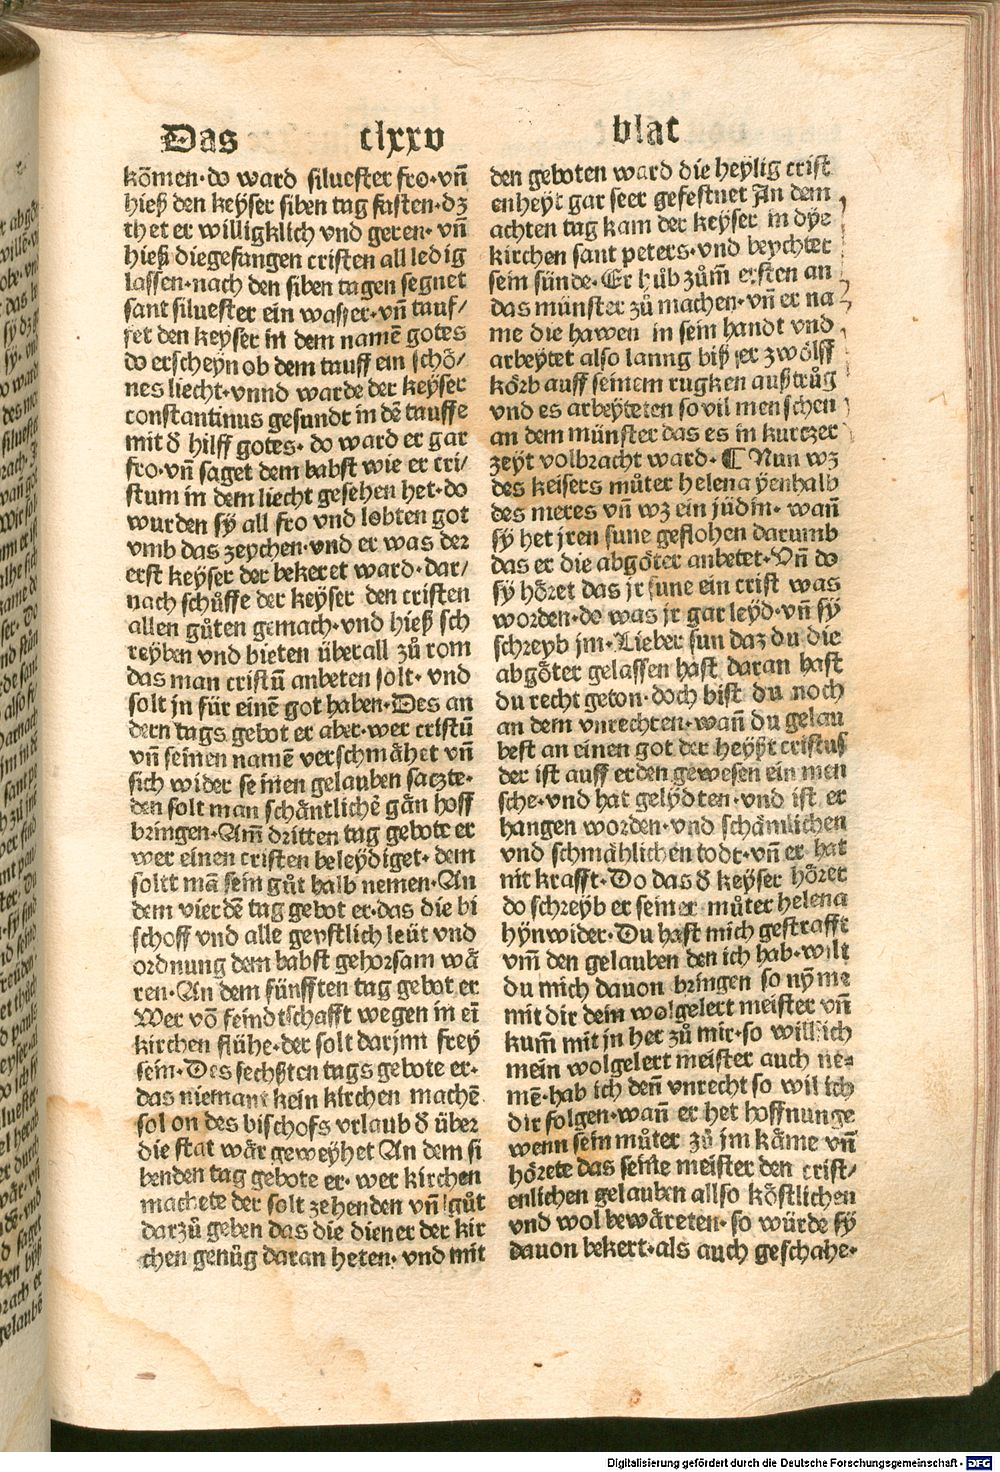 Das clxxv blat
kōmen·do ward siluester fro·vn̄
hieß den keÿser siben tag fasten·dz
thet er willigklich vnd geren·vn̄
hieß diegefangen cristen all ledig
lassen·nach den siben tagen segnet
sant siluester ein wasser·vn̄ tauf/
fet den keyser in dem namē gotes
do erscheyn ob dem tauff ein schö/
nes liecht·vnnd warde der keÿser
constantinus gesundt in dē tauffe
mit ð hilff gotes·do ward er gar
fro·vn̄ saget dem babst wie er cri/
stum in dem liecht gesehen het·do
wurden sÿ all fro vnd lobten got
vmb das zeychen·vnd er was der
erst keÿser der bekeret ward·dar/
nach schůffe der keÿser den cristen
allen gůten gemach·vnd hieß sch
reÿben vnd bieten überall zů rom
das man cristū anbeten solt·vnd
solt jn für einē got haben·Des an
dern tags gebot er aber·wer cristū
vn̄ seinen namē verschmähet vn̄
sich wider seinen gelauben saczte·
den solt man schäntlichē gān hoff
bringen·Am̄ dritten tag gebote er
wer einen cristen beleÿdiget·dem
soltt mā sein gůt halb nemen·An
dem vierdē tag gebot er·das die bi
schoff vnd alle geystlich leüt vnd
ordnung dem babst gehorsam wä
ren·An dem fünfften tag gebot er
Wer vō feindtschafft wegen in eī
kirchen flühe·der solt darjnn freÿ
sein·Des sechßten tags gebote er·
das niemant kein kirchen machē
sol on des bischofs vrlaub ð über
die stat wär geweÿhet An dem si
benden tag gebote er·wer kirchen
machete der solt zehenden vn̄ gůt
darzů geben das die diener der kir
chen genůg daran heten·vnd mit
den geboten ward die heÿlig crist
enheÿt gar seer gefestnet An dem
achten tag kam der keÿser in dÿe
kirchen sant peters·vnd beychtet
sein sünde·Er hůb zům̄ ersten an
das münster zů machen·vn̄ er na
me die hawen in sein handt vnd
arbeÿtet also lanng biß er zwölff
körb auff seinem rugken außtrůg
vnd es arbeÿteten so vil menschen
an dem münster das es in kurczer
zeÿt volbracht ward·¶ Nun wz
des keisers můter helena ÿenhalb
des meres vn̄ wz ein jüdin·wan̄
sÿ het jren sune geflohen darumb
das er die abgöter anbetet·Vn̄ do
sÿ höret das jr sune ein crist was
worden·do was jr gar leÿd·vn̄ sÿ
schreyb jm·Lieber sun daz du die
abgöter gelassen hast daran hast
du recht geton·doch bist du noch
an dem vnrechten·wan̄ du gelau
best an einen got der heÿßt cristus
der ist auff erden gewesen ein men
sche·vnd hat gelÿdten·vnd ist er
hangen worden·vnd schämlichen
vnd schmählichen todt·vn̄ er hat
nit krafft·Do das ð keyser höret
do schreÿb er seiner můter helena
hÿnwider·Du hast mich gestrafft
vm̄ den gelauben den ich hab·wilt
du mich dauon bringen so nÿme
mit dir dein wolgelert meister vn̄
kum̄ mit in her zů mir·so will ich
mein wolgelert meister auch ne=
mē·hab ich den̄ vnrecht so wil ich
dir folgen·wan̄ er het hoffnunge
wenn sein můter zů jm käme vn̄
hörete das seine meister den crist/
enlichen gelauben allso köstlichen
vnd wol bewäreten·so würde sÿ
dauon bekert·als auch geschahe·
Digitalisierung gefördert durch die Deutsche Forschungsgemeinschaft - DFG